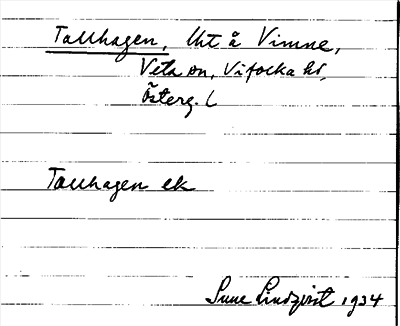 Tallhagen, Uht å Vimne,
Veta sn, Vifolka hd,
Österg. L
Tallhagen ek
Sune Lindqvist 1934